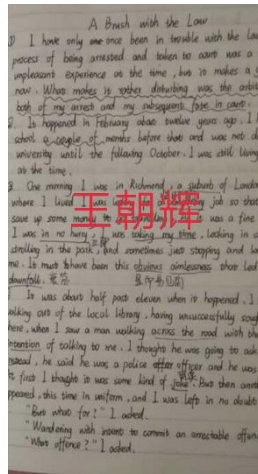 A Brush with the Law
I have only once been in trouble with the La
process of being arrested and taken to court was a
unpleasant experience at the time, but it makes a g
now. What makes it rather disturbing was the arbit
both of my arrest and my subsequent fate in court.
It happened in February about twelve years ago. I
school a couple of months before that and was not d
university until the following October. I was still living
at the time.
3 One morning I was in Richmond, a suburb of London
where I lived
job so that
save up some money to
was a fine
I was in no hurry, I was taking my time, looking in s
strolling in the park, and sometimes just stopping and lo
me. It must have been this obvious aimlessness that led
downfall.
It was about half past eleven when it happened. I
alking out of the local library, having unsuccessfully soug
here, when I saw a man walking across the road with the
intention of talking to me. I thought he was going to ask
nstead, he said he was a police officer and he was
t first I thought it was some kind of joke. But then anot
ppeared, this time in uniform, and I was left in no doubt
"But what for?" I asked.
"Wandering with intent to commit an arrestable offen
"What offence?" I asked.
王朝辉